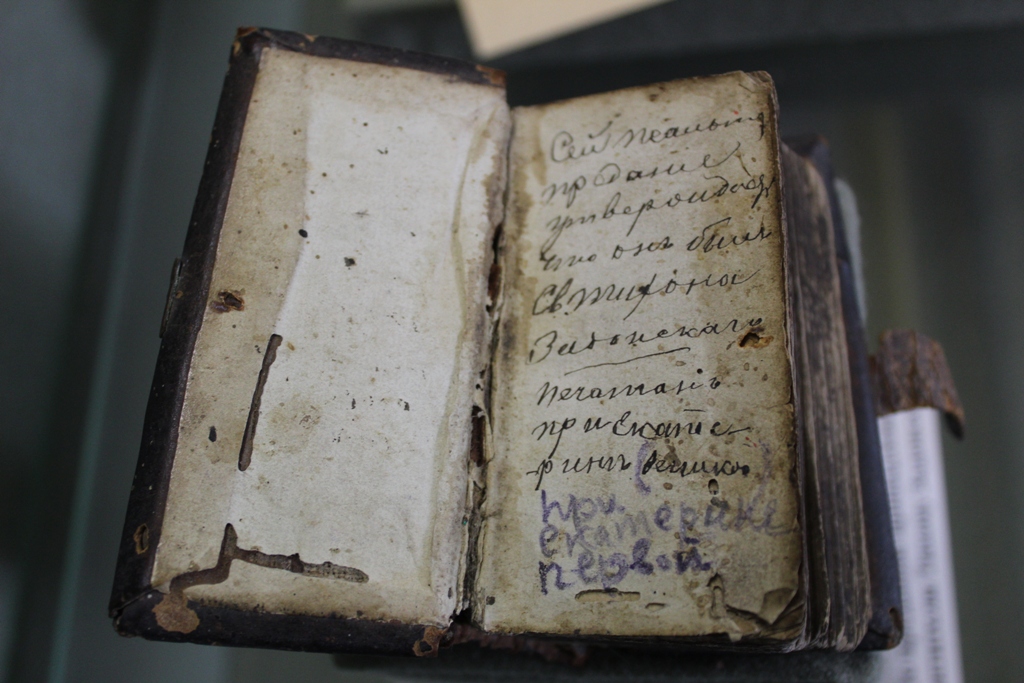 Сей псалтыр
преданіе
утвероидаетъ
что онъ былъ
Св Тихона
Задонскаго
печатанъ
при Екате-
ринѣ (Велико)
при
екатерине
первой